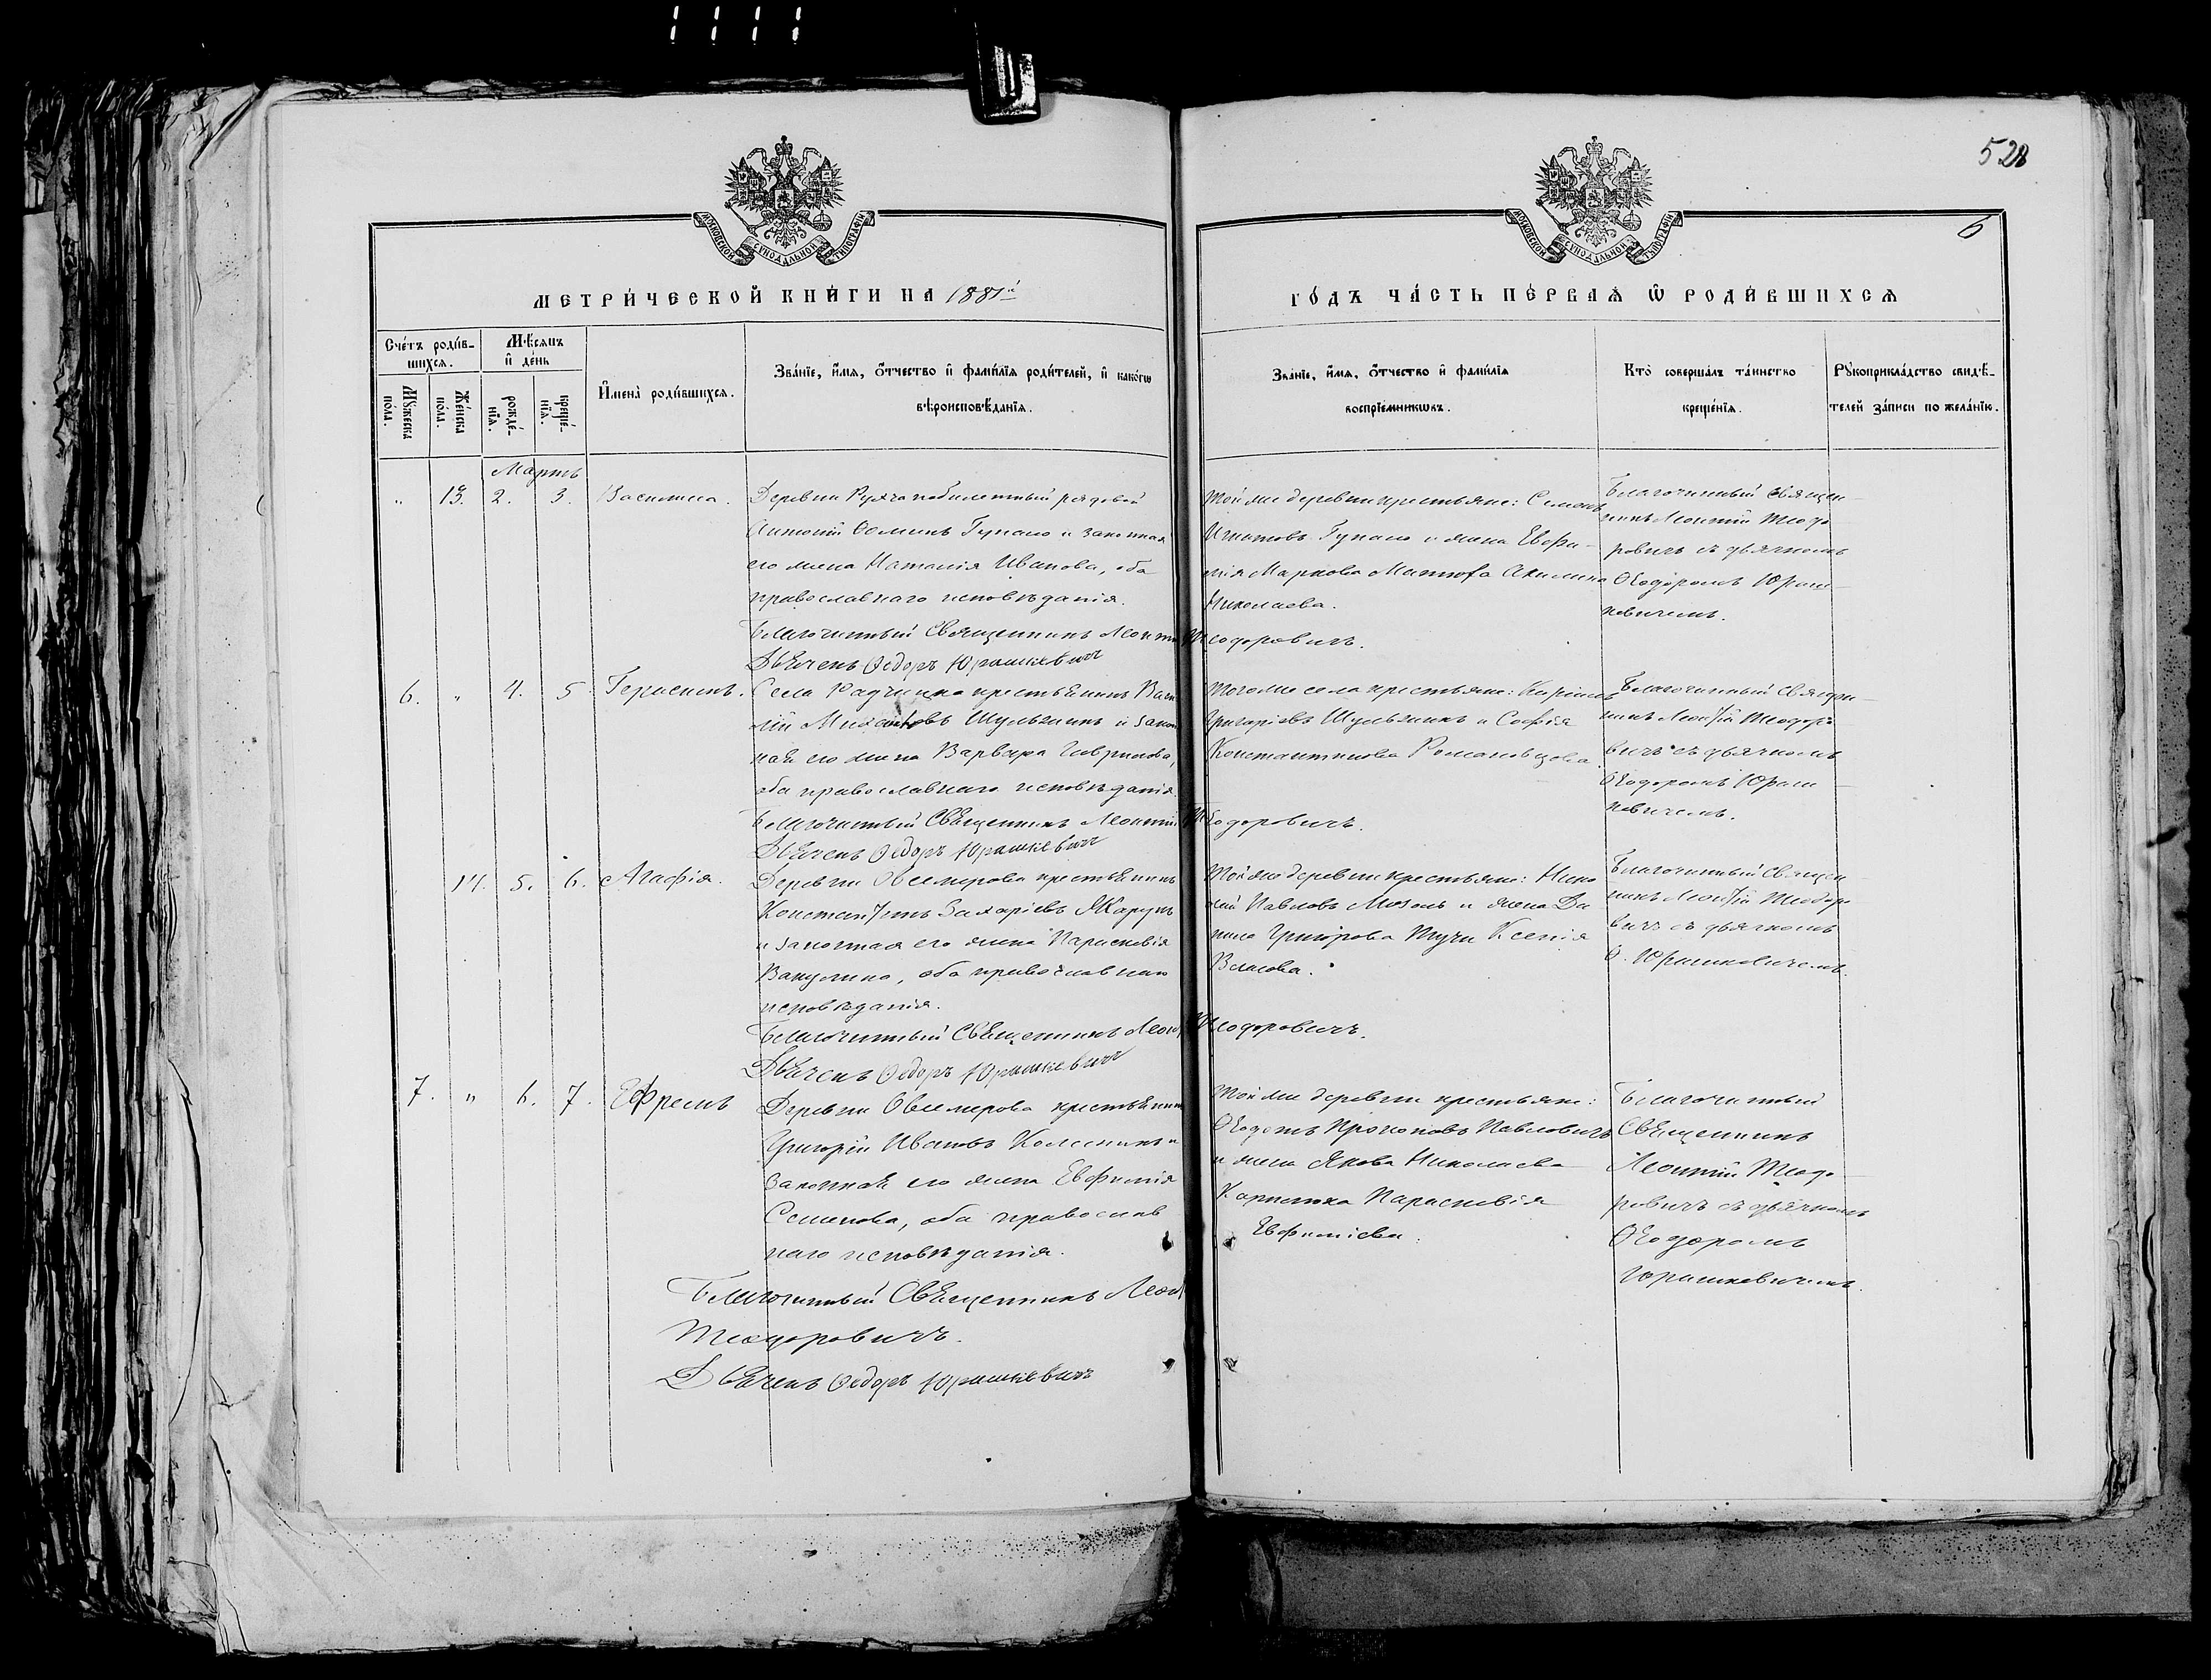 528
6
МОСКОВСКОЙ СѴНОДАЛЬНОЙ ТИПОГРАФІИ
МОСКОВСКОЙ СѴНОДАЛЬНОЙ ТИПОГРАФІИ
МЕТРИ́ЧЕСКОЙ КНИ́ГИ НА 1881й
ГО́ДЪ ЧА́СТЬ ПЕ́РВАѦ Ѿ РОДИ́ВШИХСѦ
Сче́тъ роди́в-
шихсѧ.
Мѣ́сѧцъ
и҆ де́нь
Мꙋ́жеска по́ла.
Же́нска по́ла.
рожде́-нїѧ.
креще́-нїѧ.
И҆мена̀ роди́вшихсѧ.
Зва́нїе, и҆́мѧ, ѻ҆́тчество и҆ фами́лїѧ роди́телей, и҆ како́гѡ
вѣроисповѣ́данїѧ.
Зва́нїе, и҆́мѧ, ѻ҆́тчество и҆ фами́лїѧ
воспрїе́мникѡвъ.
Кто̀ соверша́лъ та́инство
креще́нїѧ.
Рꙋкоприкла́дство свидѣ́-
телей за́писи по жела́нїю.
Мартъ
" 13. 2. 3. Василиса.
Деревни билетный рядовой
Антоній Семинъ Гупало и законная
его жена Наталія Иванова, оба
православнаго исповѣданія.
Благочинный Священникъ Леонтій Теодоровичъ.
Дьячекъ Ѳедоръ Юрашкевичъ
Той же деревни крестьяне: Семенъ
Игнатовъ Гупало и жена Евфи-
мія Маркова Акилина
Николаева.
Благочинный Священ-
никъ Леонтій Теодо-
ровичъ съ дьячкомъ
Ѳеодоромъ Юраш-
кевичемъ.
6. " 4. 5 Герасимъ.
Села крестьянинъ Васи
лій Шульжикъ и закон
ная его жена Варвара Гаврилова,
оба православнаго исповѣданія.
Благочинный Священникъ Леонтій Теодоровичъ.
Дьячекъ Ѳедоръ Юрашкевичъ
Того же села крестьяне:
Григоріевъ Шульжикъ и Софія
Константинова
Благочинный Священ-
никъ Леонтій Теодоро
вичъ съ дьячкомъ
Ѳеодоромъ Юраш-
кевичемъ.
14. 5. 6. Агафія.
Деревни Овсемирова крестьянинъ
Константинъ Захаріевъ
и законная его жена Параскевія
оба православнаго
исповѣданія.
Благочинный Священникъ Леонт Теодоровичъ.
Дьячекъ Ѳедоръ Юрашкевичъ
Той же деревни крестьяне: Нико
лай Павловъ Мозоль и жена Да
нила Ксенія
Власова.
Благочинный Священ-
никъ Леонтій Теодоро
вичъ съ дьячкомъ
Ѳ. Юрашкевичемъ.
7. " 6. 7. Ефремъ
Деревни Овсемирова крестьянинъ
Григорій Ивановъ и
законная его жена Евфимія
Семенова, оба православ
наго исповѣданія.
Благочинный Священникъ Леонт
Теодоровичъ.
Дьячекъ Ѳедоръ Юрашкевичъ
Той же деревни крестьяне:
Ѳеодотъ Прокоповъ Павловичъ
и жена Якова Николаева
Параскевія
Евфиміева.
Благочинный
Священникъ
Леонтій Теодо-
ровичъ съ дьячкомъ
Ѳеодоромъ
Юрашкевичемъ.